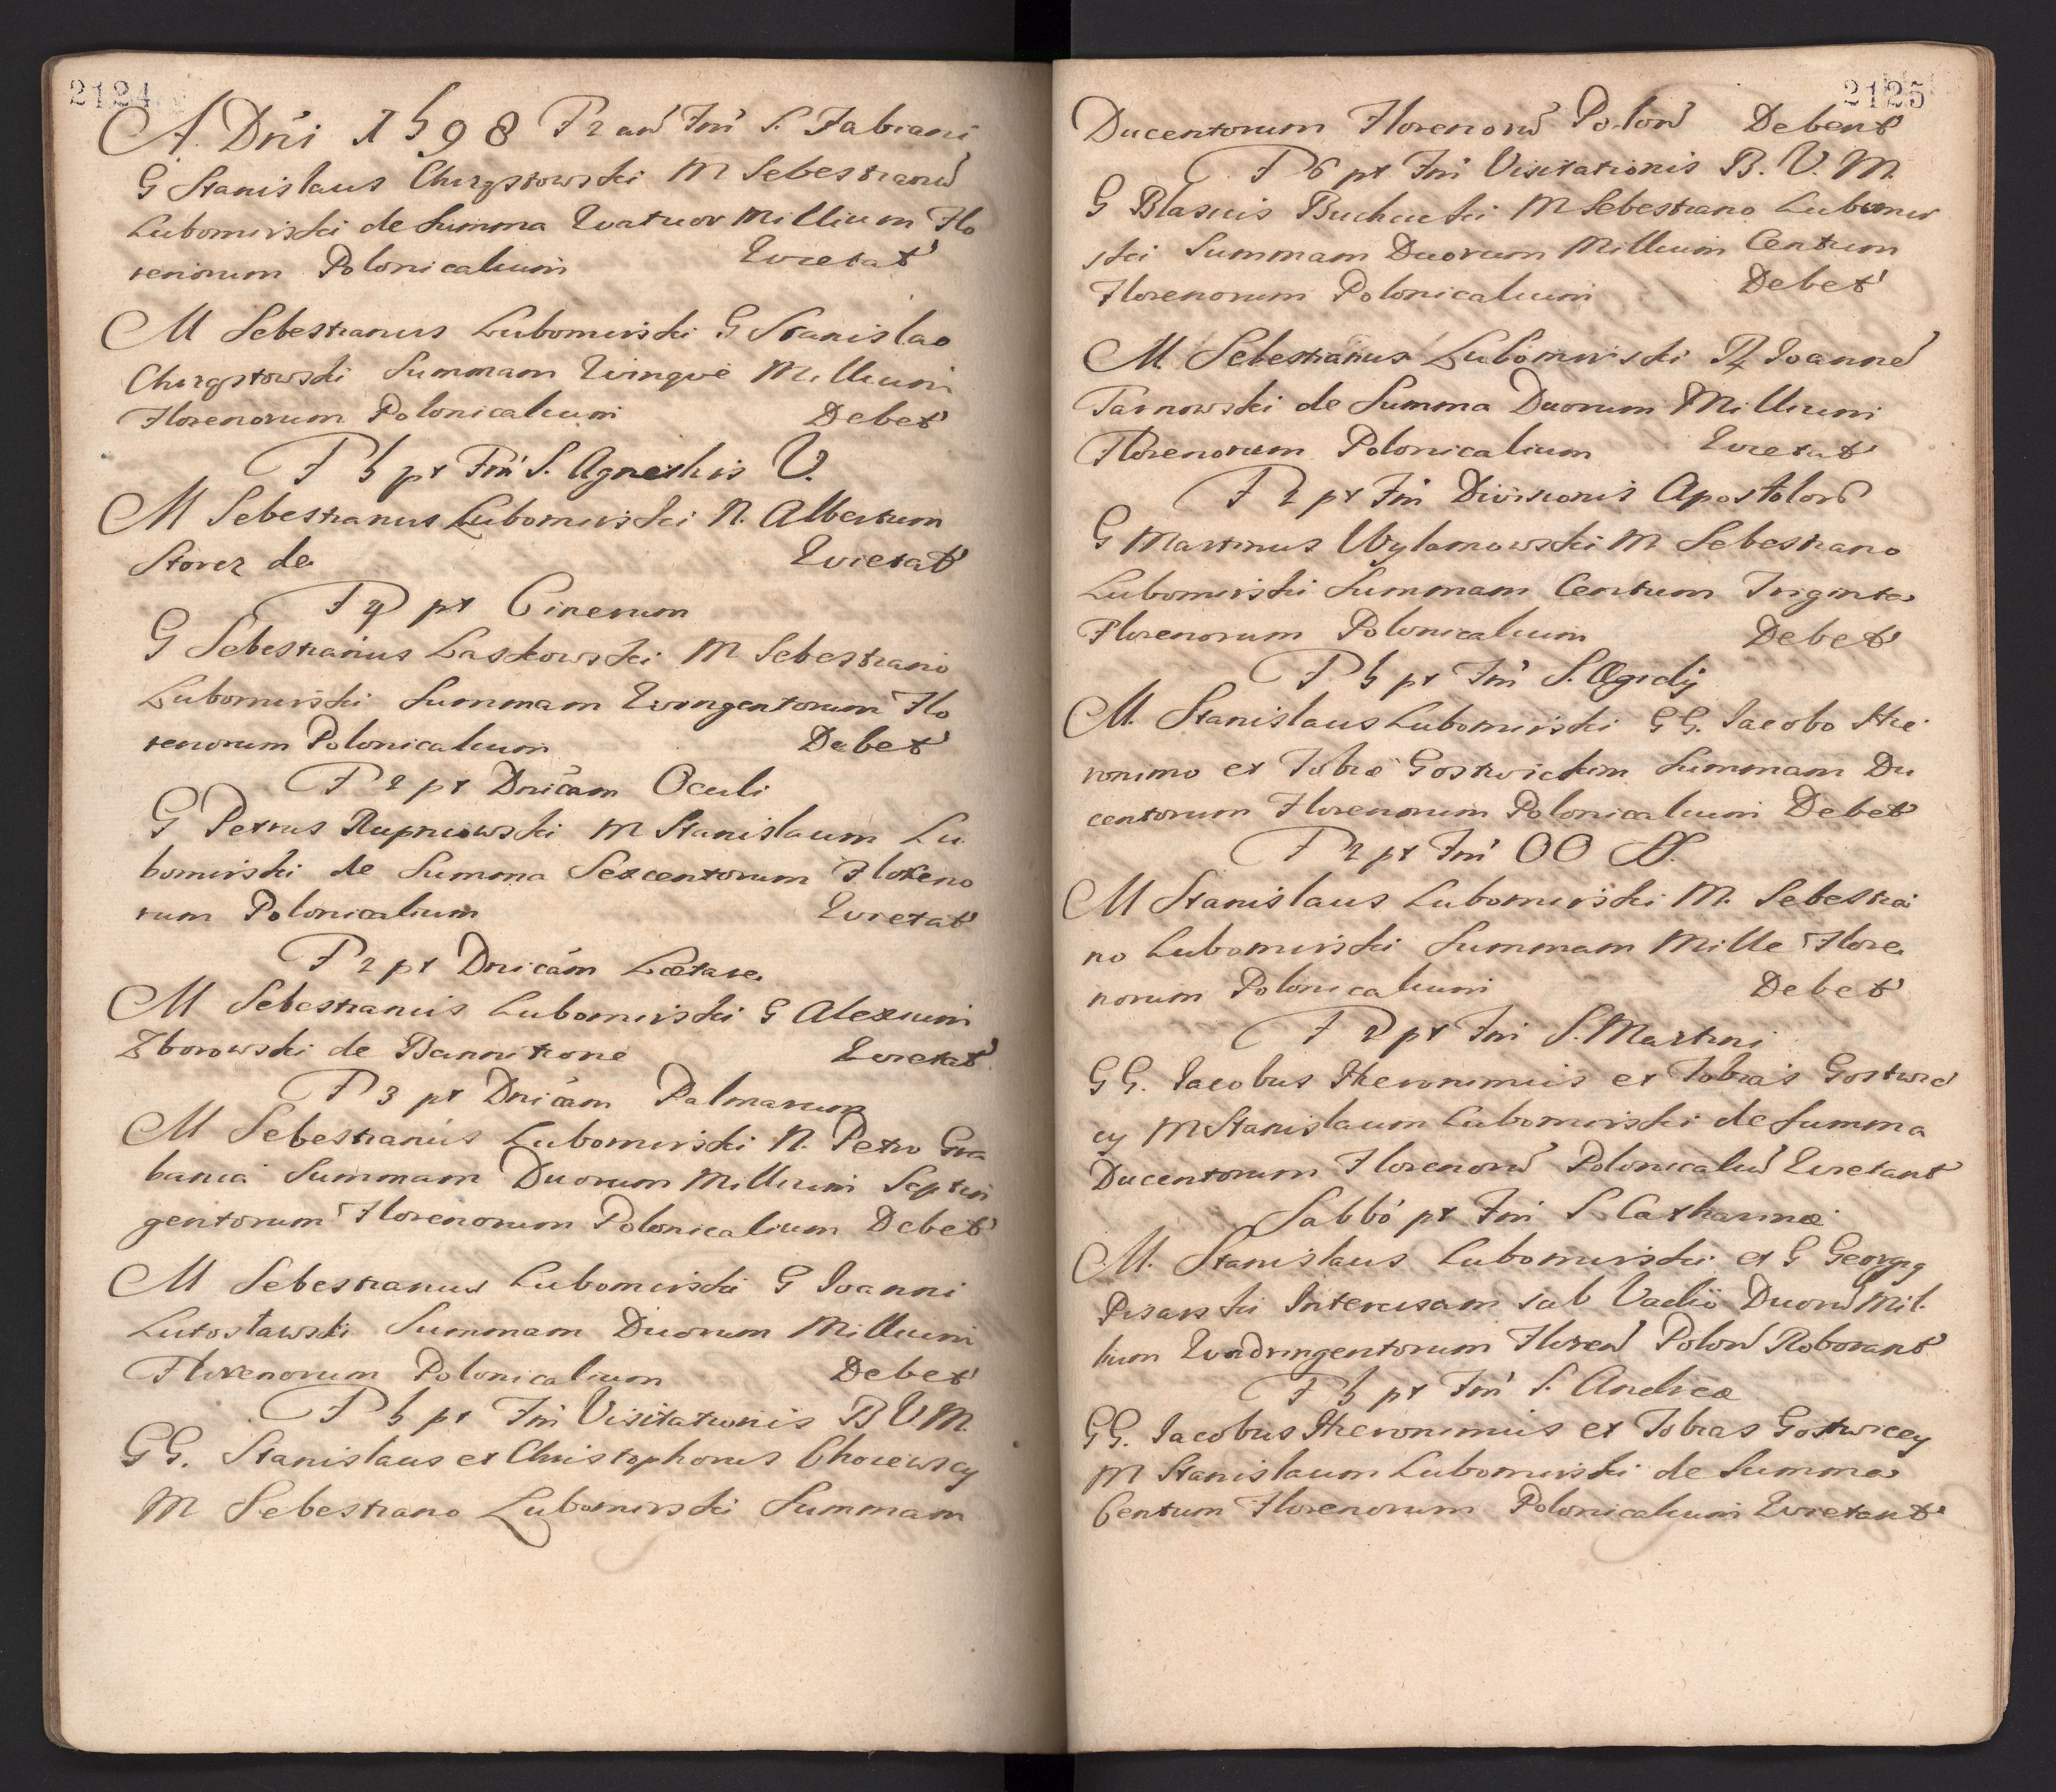 2124
A. Dn̄i 1598 F 2 an̄ Fm̄ S. Fabiani
G Stanislaus Chrząstowski M Sebestianū
Lubomirski de Summa Quatuor Millium Flo
renorum Polonicalium Quietat
M Sebestianus Lubomirski G Stanislao
Chrząstowski Summam Quinque Millium
Florenorum Polonicalium Debet
F 5 pt Fm̄ S. Agnethis V.
M Sebestianus Lubomirski N. Albertum
Storcz de Quietat
F 4 pt Cinerum
G Sebestianus Laskowski M Sebestiano
Lubomirski Summam Quingentorum Flo
renorum Polonicalium Debet
F 2 pt Dn̄icam Oculi
G Petrus Rupniowski M Stanislaum Lu
bomirski de Summa Sexcentorum Floreno
rum Polonicalium Quietat
F 2 pt Dn̄icam Lætare
M Sebestianus Lubomirski G Alexium
Zborowski de Bannitione Quietat
F 3 pt Dn̄icam Palmarum
M Sebestianus Lubomirski N. Petro Gra
bania Summam Duorum Millium Septin
gentorum Florenorum Polonicalium Debet
M Sebestianus Lubomirski G Ioanni
Lutosławski Summam Duorum Millium
Florenorum Polonicalium Debet
F 5 pt Fm̄ Visitationis B V M.
GG. Stanislaus et Christophorus Chorewscy
M Sebestiano Lubomirski Summam
2125
Ducentorum Florenorū Polon̄ Debent
F 6 pt Fm̄ Visitationis B. V. M.
G Blasius Buchucki M Sebestiano Lubomir
ski Summam Duorum Millium Centum
Florenorum Polonicalium Debet
M Sebestianus Lubomirski M Ioannē
Tarnowski de Summa Duorum Millium
Florenorum Polonicalium Quietat
F 2 pt Fm̄ Divisionis Apostolorū
G Martinus Wylamowski M Sebestiano
Lubomirski Summam Centum Triginta
Florenorum Polonicalium Debet
F 5 pt Fm̄ S. Ægidij
M. Stanislaus Lubomirski GG. Iacobo Hie
ronimo et Tobiæ Gostwickim Summam Du
centorum Florenorum Polonicalium Debet
F 2 pt Fm̄ OO SS.
M Stanislaus Lubomirski M. Sebestia
no Lubomirski Summam Mille Flore
norum Polonicalium Debet
F 2 pt Fm̄ S. Martini
GG. Iacobus Hieronimus et Tobias Gostwic
cy M Stanislaum Lubomirski de Summa
Ducentorum Florenorū Polonicaliū Quietant
Sabbo pt Fm̄ S. Catharinæ
M. Stanislaus Lubomirski et G Georgig
Pisarski Intercisam sub Vadio Duorū Mil.
lium Quadringentorum Floren̄ Polon̄ Roborant
F 5 pt Fm̄ S. Andreæ
GG. Iacobus Hieronimus et Tobias Gostwiccy
M Stanislaum Lubomirski de Summa
Centum Florenorum Polonicalium Quietant